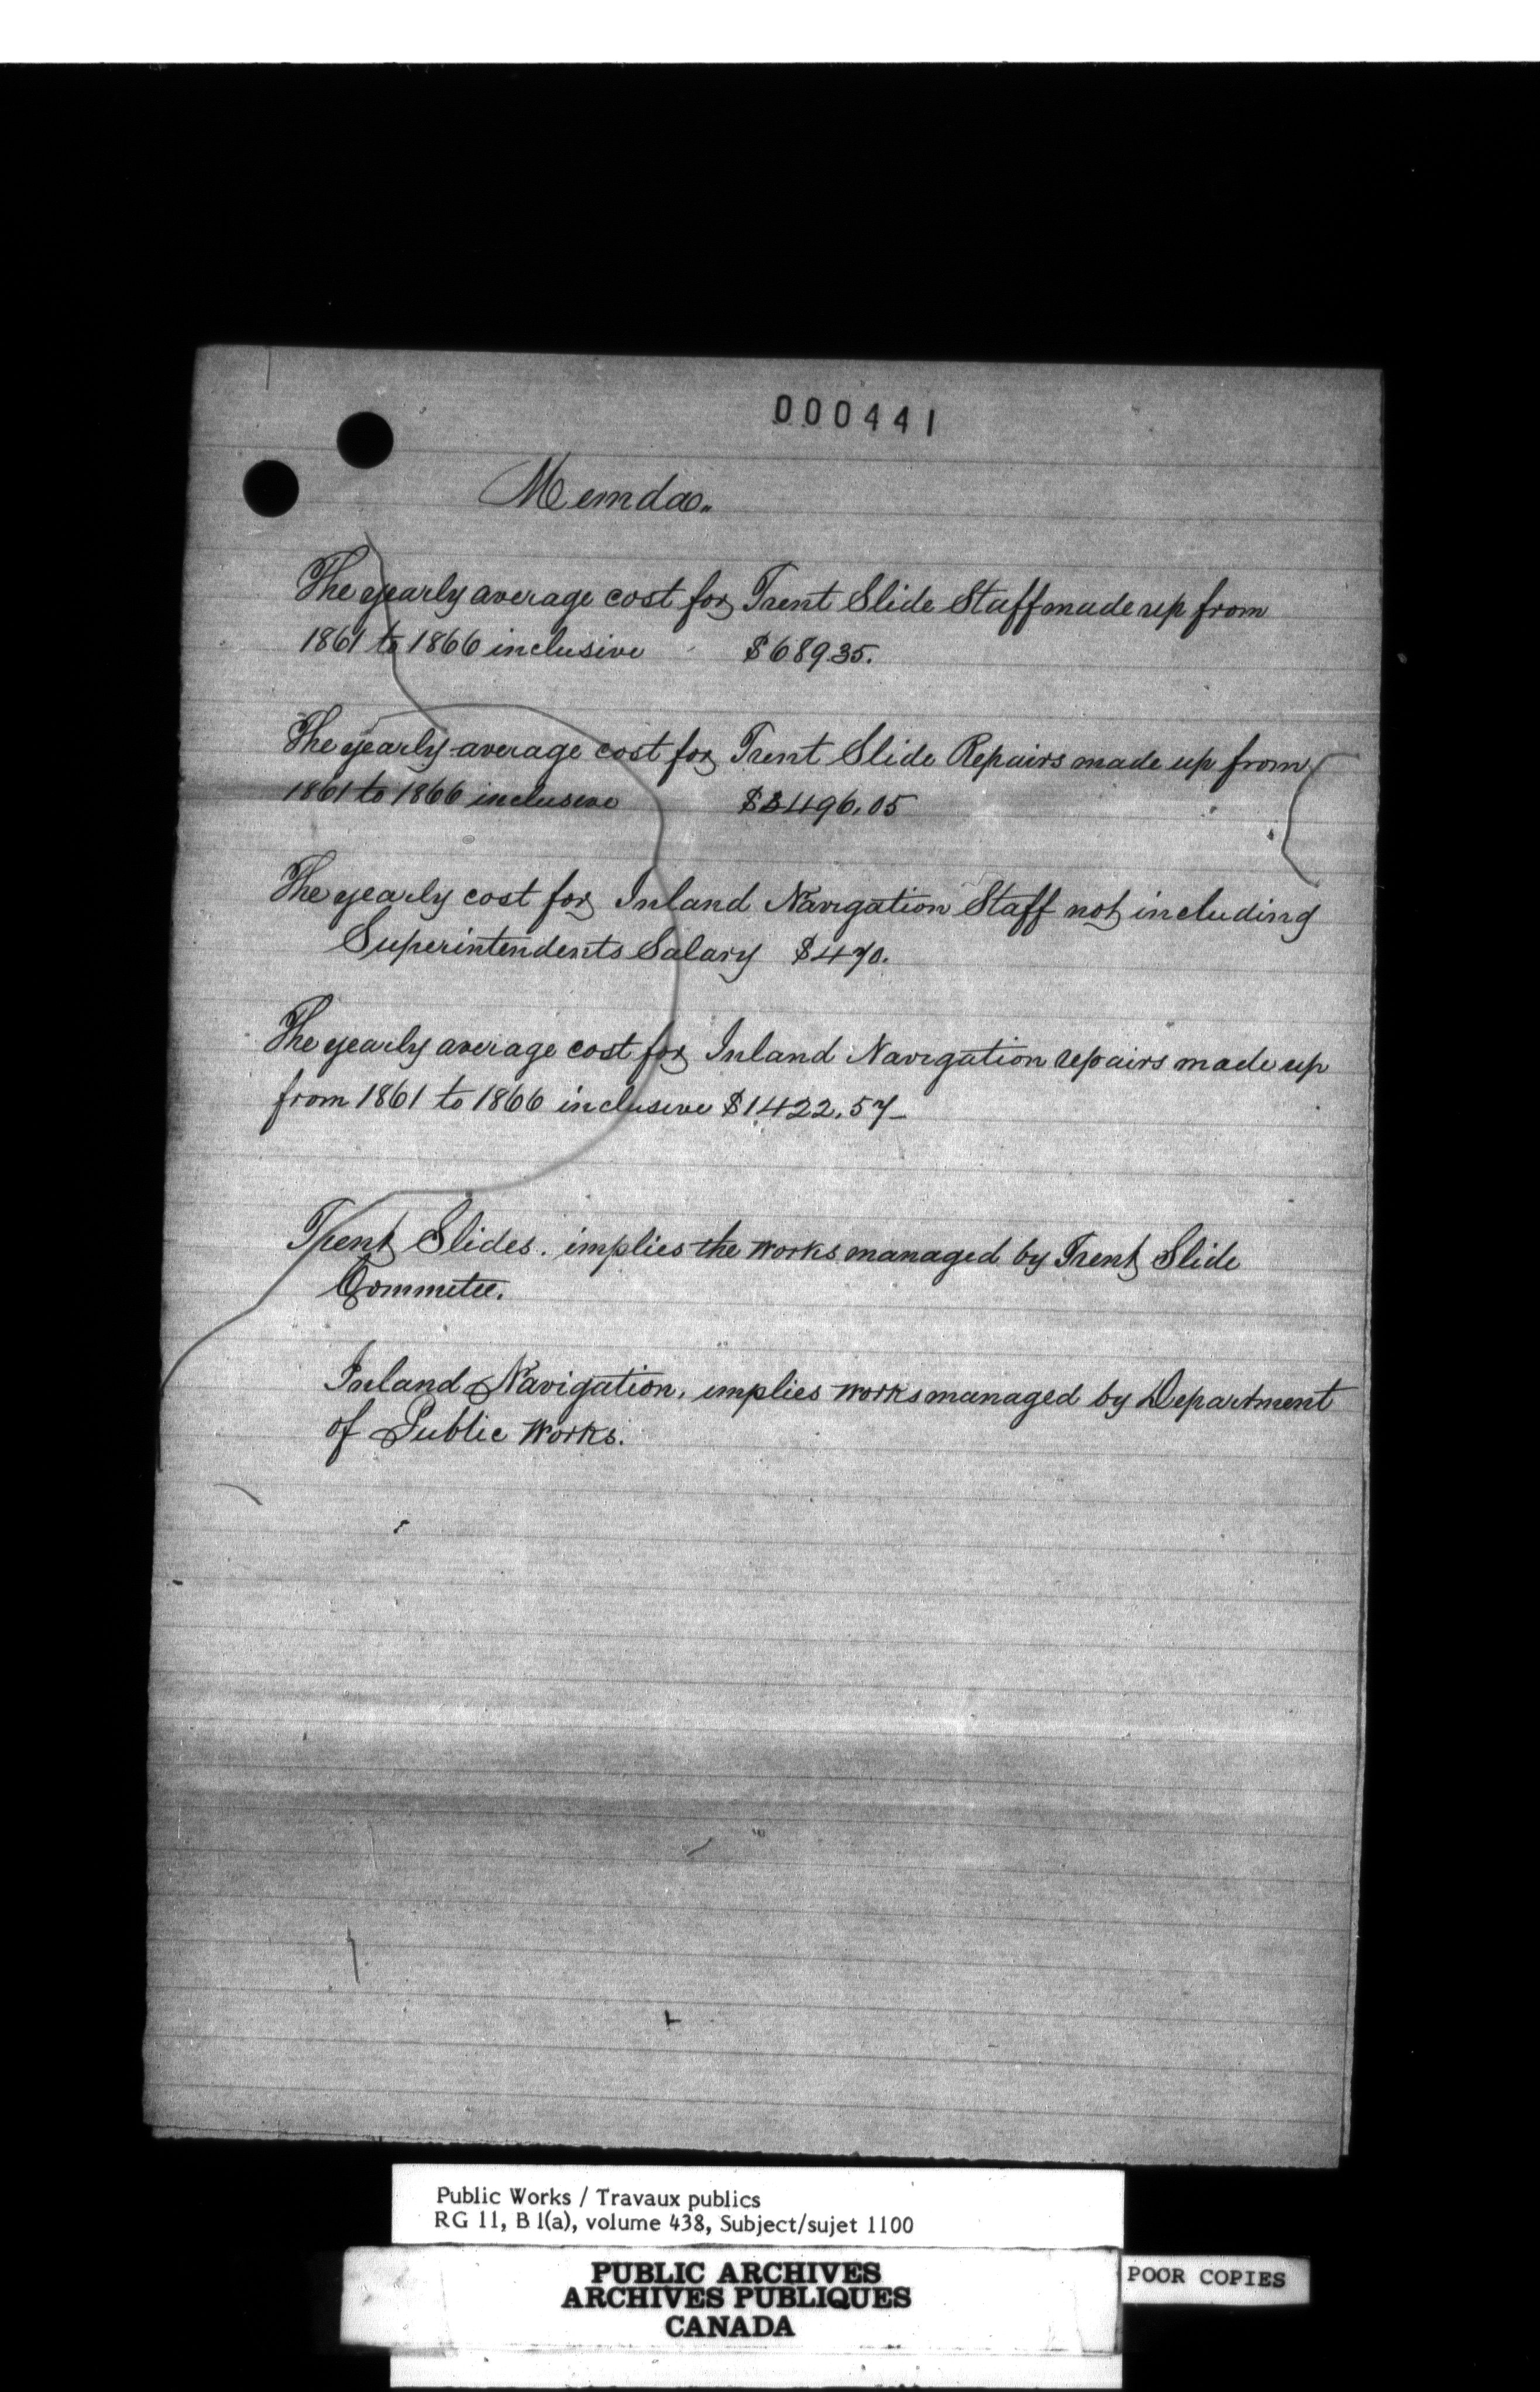 000441
Memda..
The yearly average cost for Trent Slide Staff made up from
1861 to 1866 inclusive $689.35.
The yearly average cost for Trent Slide Repairs made up from
1861 to 1866 inclusive $3496.05
The yearly cost for Inland Navigation Staff not including
Superintendents Salary $470.
The yearly average cost for Inland Navigation repairs made up
from 1861 to 1866 inclusive $1422.57_
Trent Slides. implies the works managed by Trent Slide
Commetee.
Inland Navigation, implies works managed by Department
of Public Works.
Public Works / Travaux publics
RG 11, B 1(a), volume 438, Subject/sujet 1100
PUBLIC ARCHIVES
ARCHIVES PUBLIQUES
CANADA
POOR COPIES